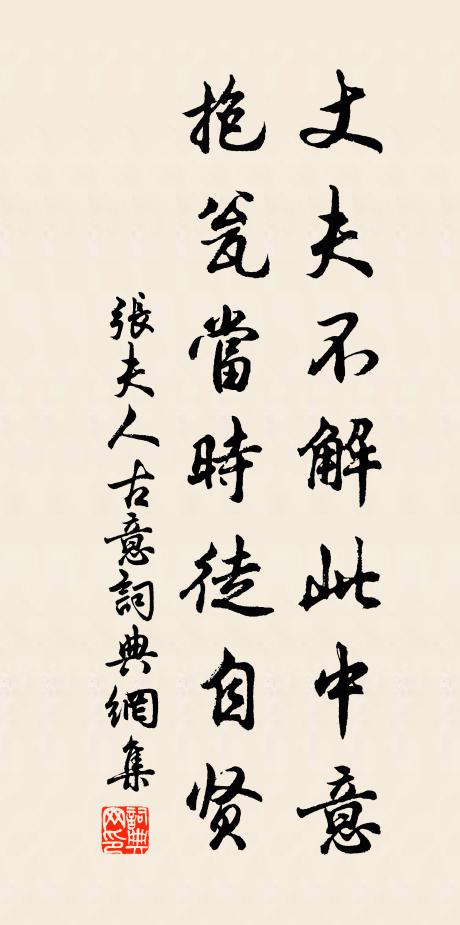 丈夫不解此中意
抱瓮當時徒自贤
張夫人古意詞典網集
詞典网印